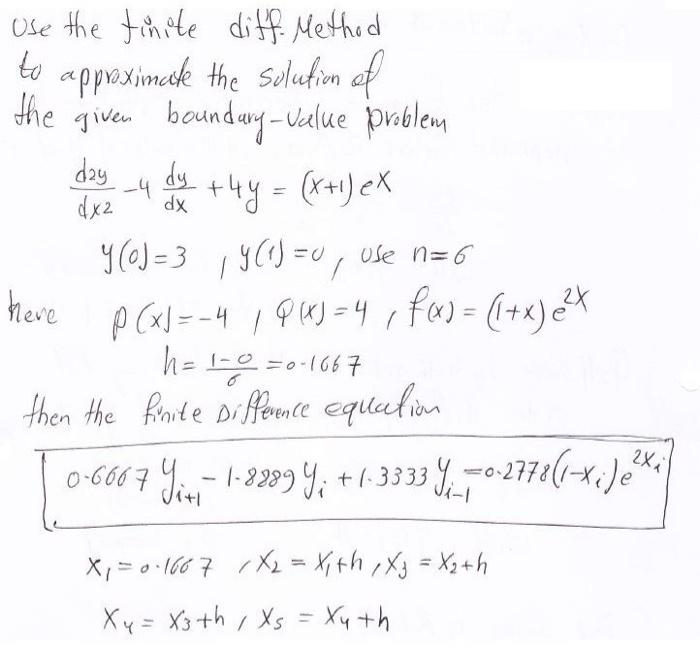 Use the finite diff. Method
to approximate the solution of
the given boundary-value problem
d2y/dx2 -4 dy/dx +4y = (x+1) ex
y(0)=3 , y(1)=0, use n=6
here p(x)=-4 , Q(x)=4 , f(x)=(1+x) e^2x
h= 1-0/6 =0.1667
then the finite Difference equation
0.6667 y_i+1 - 1.8889 y_i + 1.3333 y_i-1 = 0.2778(1-x_i) e^2x_i
x_1=0.1667 , x_2 = x_1+h , x_3 = x_2+h
x_4 = x_3+h , x_5 = x_4+h